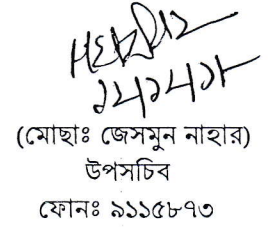 (মোছাঃ জেসমুন নাহার)
উপসচিব
ফোনঃ ৯১১৫৮৭৩